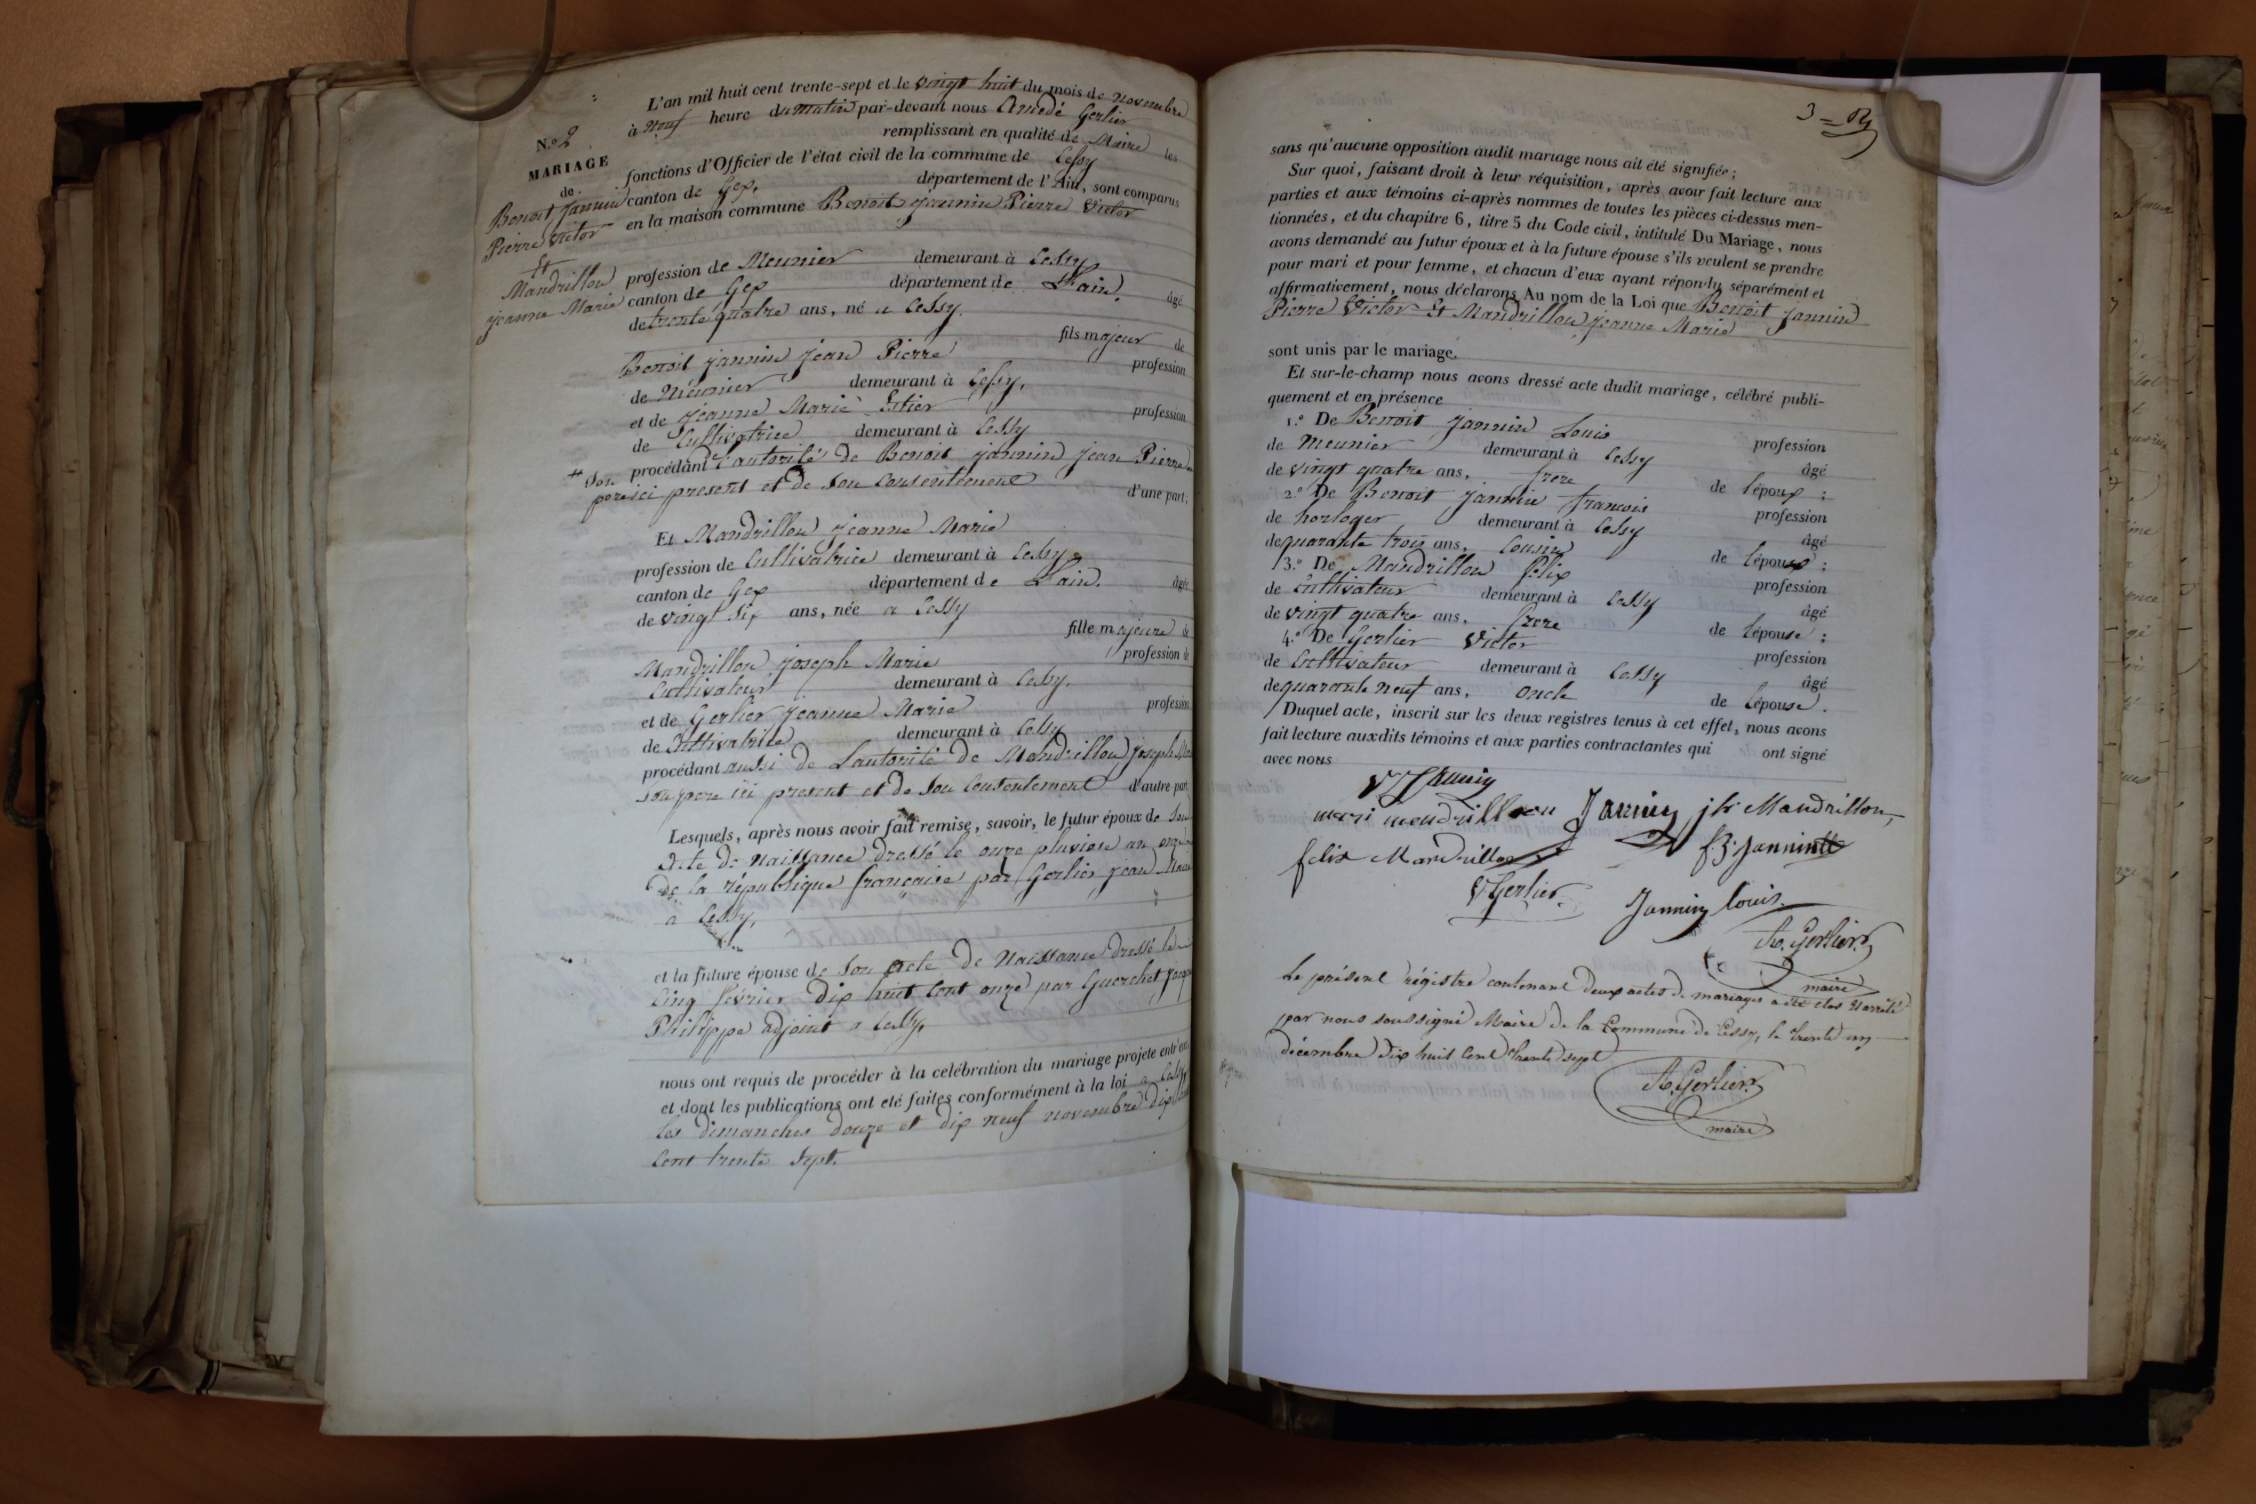 L'an mil huit cent trente-sept et le vingt huit du mois de novembre
à neuf heure du matin par-devant nous Amedé Gerlier
remplissant en qualité de Maire les
fonctions d'Officier de l'état civil de la commune de Cessy
canton de Gex, département de l'Ain, sont comparus
en la maison commune Benoit jannin Pierre Victor
N.o 2
MARIAGE
de
Benoit Jannin
Pierre Victor
Et
Mandrillon
jeanne Marie
profession de Meunier demeurant à Cessy
canton de Gex département de L'ain, âgé
de trente quatre ans, né a Cessy.
fils majeur de
Benoit jannin jean Pierre profession
de Meunier demeurant à Cessy,
et de jeanne Marie Estier profession
de Cultivatrice demeurant à Cessy
procédant de l'autorité de Benoit jannin jean Pierre
# son
pere ici present et de son consentement d'une part.
Et Mandrillon jeanne Marie
profession de Cultivatrice demeurant à Cessy
canton de Gex département de L'ain. âgée
de vingt six ans, née a Cessy
fille majeure de
Mandrillon joseph Marie profession de
Cultivateur demeurant à Cessy.
et de Gerlier jeanne Marie profession
de Cultivatrice demeurant à Cessy
procédant aussi de L'autorité de Mandrillon joseph Marie
son pere ici present et de son Consentement d'autre part.
Lesquels, après nous avoir fait remise, savoir, le futur époux de Son
acte de naissance dressé le onze pluviose an onze
de la république française par Gerlier jean Maire
a Cessy,
et la future épouse de son acte de Naissance dressé le
Cinq février dix huit Cent onze par Guerchet jacques
Philippe adjoint a Cessy,
nous ont requis de procéder à la celébration du mariage projeté entr'eux
et dont les publications ont eté faites conformément à la loi a Cessy
les dimanches douze et dix neuf novembre dix huit
Cent trente Sept.
3 =
sans qu'aucune opposition audit mariage nous ait été signifiée;
Sur quoi, faisant droit à leur réquisition, après avoir fait lecture aux
parties et aux témoins ci-après nommes de toutes les pièces ci-dessus men-
tionnées, et du chapitre 6, titre 5 du Code civil, intitulé Du Mariage, nous
avons demandé au futur époux et à la future épouse s'ils veulent se prendre
pour mari et pour femme, et chacun d'eux ayant répondu séparément et
affirmativement, nous déclarons Au nom de la Loi que Benoit jannin
Pierre Victor Et Mandrillon jeanne Marie
sont unis par le mariage.
Et sur-le-champ nous avons dressé acte dudit mariage, célébré publi-
quement et en présence
1.o De Benoit jannin Louis profession
de Meunier demeurant à Cessy âgé
de vingt quatre ans, frere de l'époux ;
2.o De Benoit jannin francois profession
de horloger demeurant à Cessy âgé
de quarante trois ans, Cousin de l'époux ;
3.o De Mandrillon félix profession
de Cultivateur demeurant à Cessy âgé
de vingt quatre ans, frere de l'épouse ;
4.o De Gerlier Victor profession
de Cultivateur demeurant à Cessy âgé
de quarante neuf ans, oncle de l'épouse.
Duquel acte, inscrit sur les deux registres tenus à cet effet, nous avons
fait lecture auxdits témoins et aux parties contractantes qui ont signé
avec nous
Jannin
mari mendrillon Jannin jh Mandrillon,
felix Mandrillon fs. Jannin
V Gerlier. Jannin louis.
A. Gerlier
maire
Le présent régistre contenant deux actes de mariages a été clos et arrêté
par nous soussigné Maire de la Commune de Cessy, le trente un
décembre dix huit cent trente sept
A. Gerlier
maire